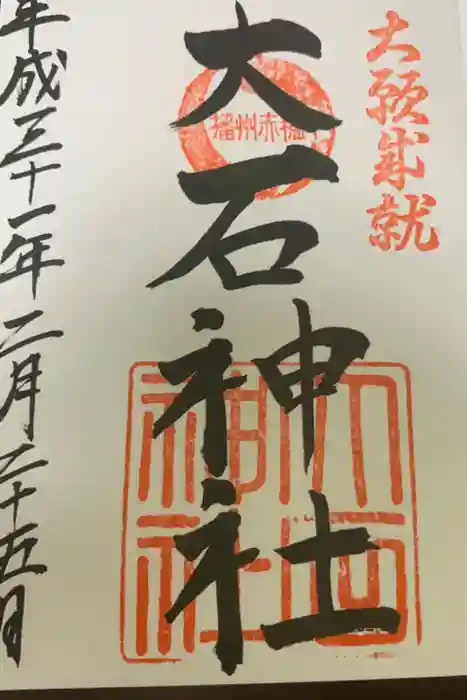 大願成就
播州赤穂
大石神社
大石神社
平成三十一年二月二十五日